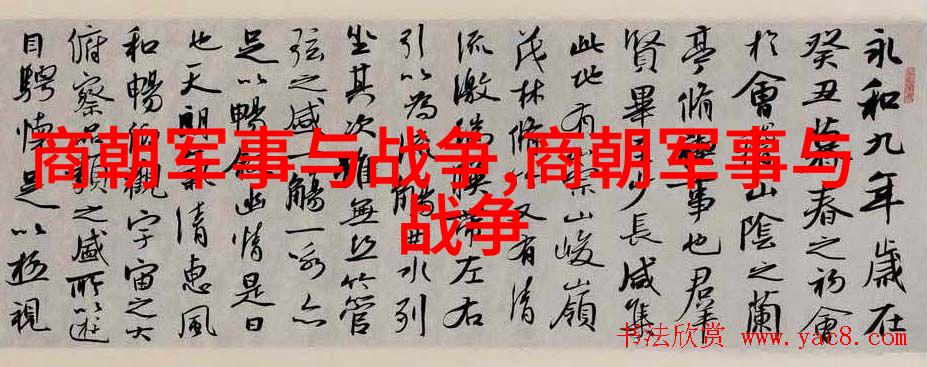 商朝军事与战争,商朝军事与
战争
永和九年歲在
癸丑暮春之初會
於會稽山陰之蘭
亭脩禊事也群
賢畢至少長咸集
此地有崇山峻嶺
茂林脩竹又有清
流激湍暎帶左右
引以為流觴曲水列
坐其次雖無絲竹管
弦之盛一觴一詠亦
足以暢敘幽情是日
也天朗氣清惠風
和暢仰觀宇宙之大
俯察品類之盛所以遊
目騁懷足以極視
书法欣赏 www.yac8.com